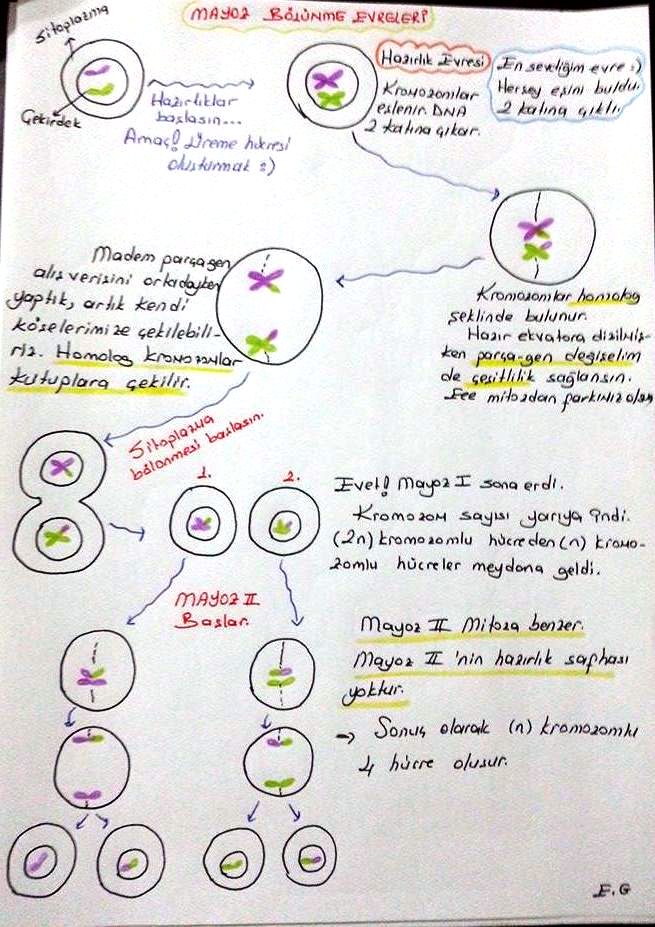 MAYOZ BÖLÜNME EVRELERİ
Sitoplazma
Çekirdek
Hazırlıklar
başlasın...
Amaç! Üreme hücresi
oluşturmak :)
Hazırlık Evresi
Kromozomlar
eşlenir. DNA
2 katına çıkar.
En sevdiğim evre :)
Herşey eşini buldu.
2 katına çıktı.
Kromozomlar homolog
şeklinde bulunur.
Hazır ekvatora dizilmiş-
ken parça-gen değişelim
de çeşitlilik sağlansın.
mitozdan farkımız olsun
Madem parça gen
alış verişini ortadayken
yaptık, artık kendi
köşelerimize çekilebili-
riz. Homolog kromozomlar
kutuplara çekilir.
Sitoplazma
bölünmesi başlasın.
1.
2.
Evet! Mayoz I sona erdi.
Kromozom sayısı yarıya indi.
(2n) kromozomlu hücreden (n) kromo-
zomlu hücreler meydana geldi.
MAYOZ II
Başlar.
Mayoz II Mitoza benzer.
Mayoz II 'nin hazırlık safhası
yoktur.
→ Sonuç olarak (n) kromozomlu
4 hücre oluşur.
E.G